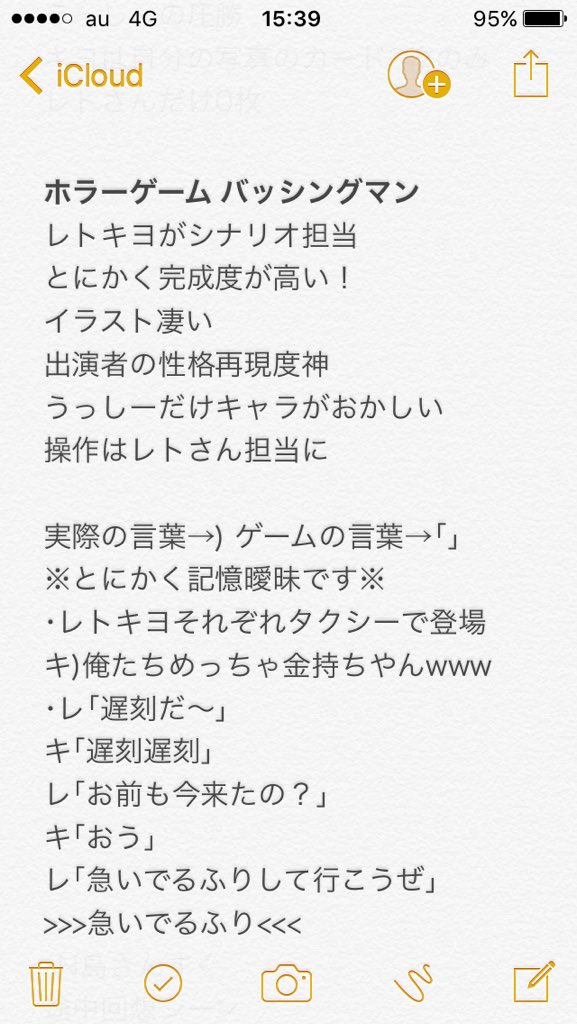 au 4G 15:39 95%
iCloud
ホラーゲーム バッシングマン
レトキヨがシナリオ担当
とにかく完成度が高い！
イラスト凄い
出演者の性格再現度神
うっしーだけキャラがおかしい
操作はレトさん担当に
実際の言葉→) ゲームの言葉→｢」
※とにかく記憶曖昧です※
･レトキヨそれぞれタクシーで登場
キ)俺たちめっちゃ金持ちやんwww
･レ｢遅刻だ〜」
キ｢遅刻遅刻」
レ｢お前も今来たの？」
キ｢おう」
レ｢急いでるふりして行こうぜ」
>>>急いでるふり<<<